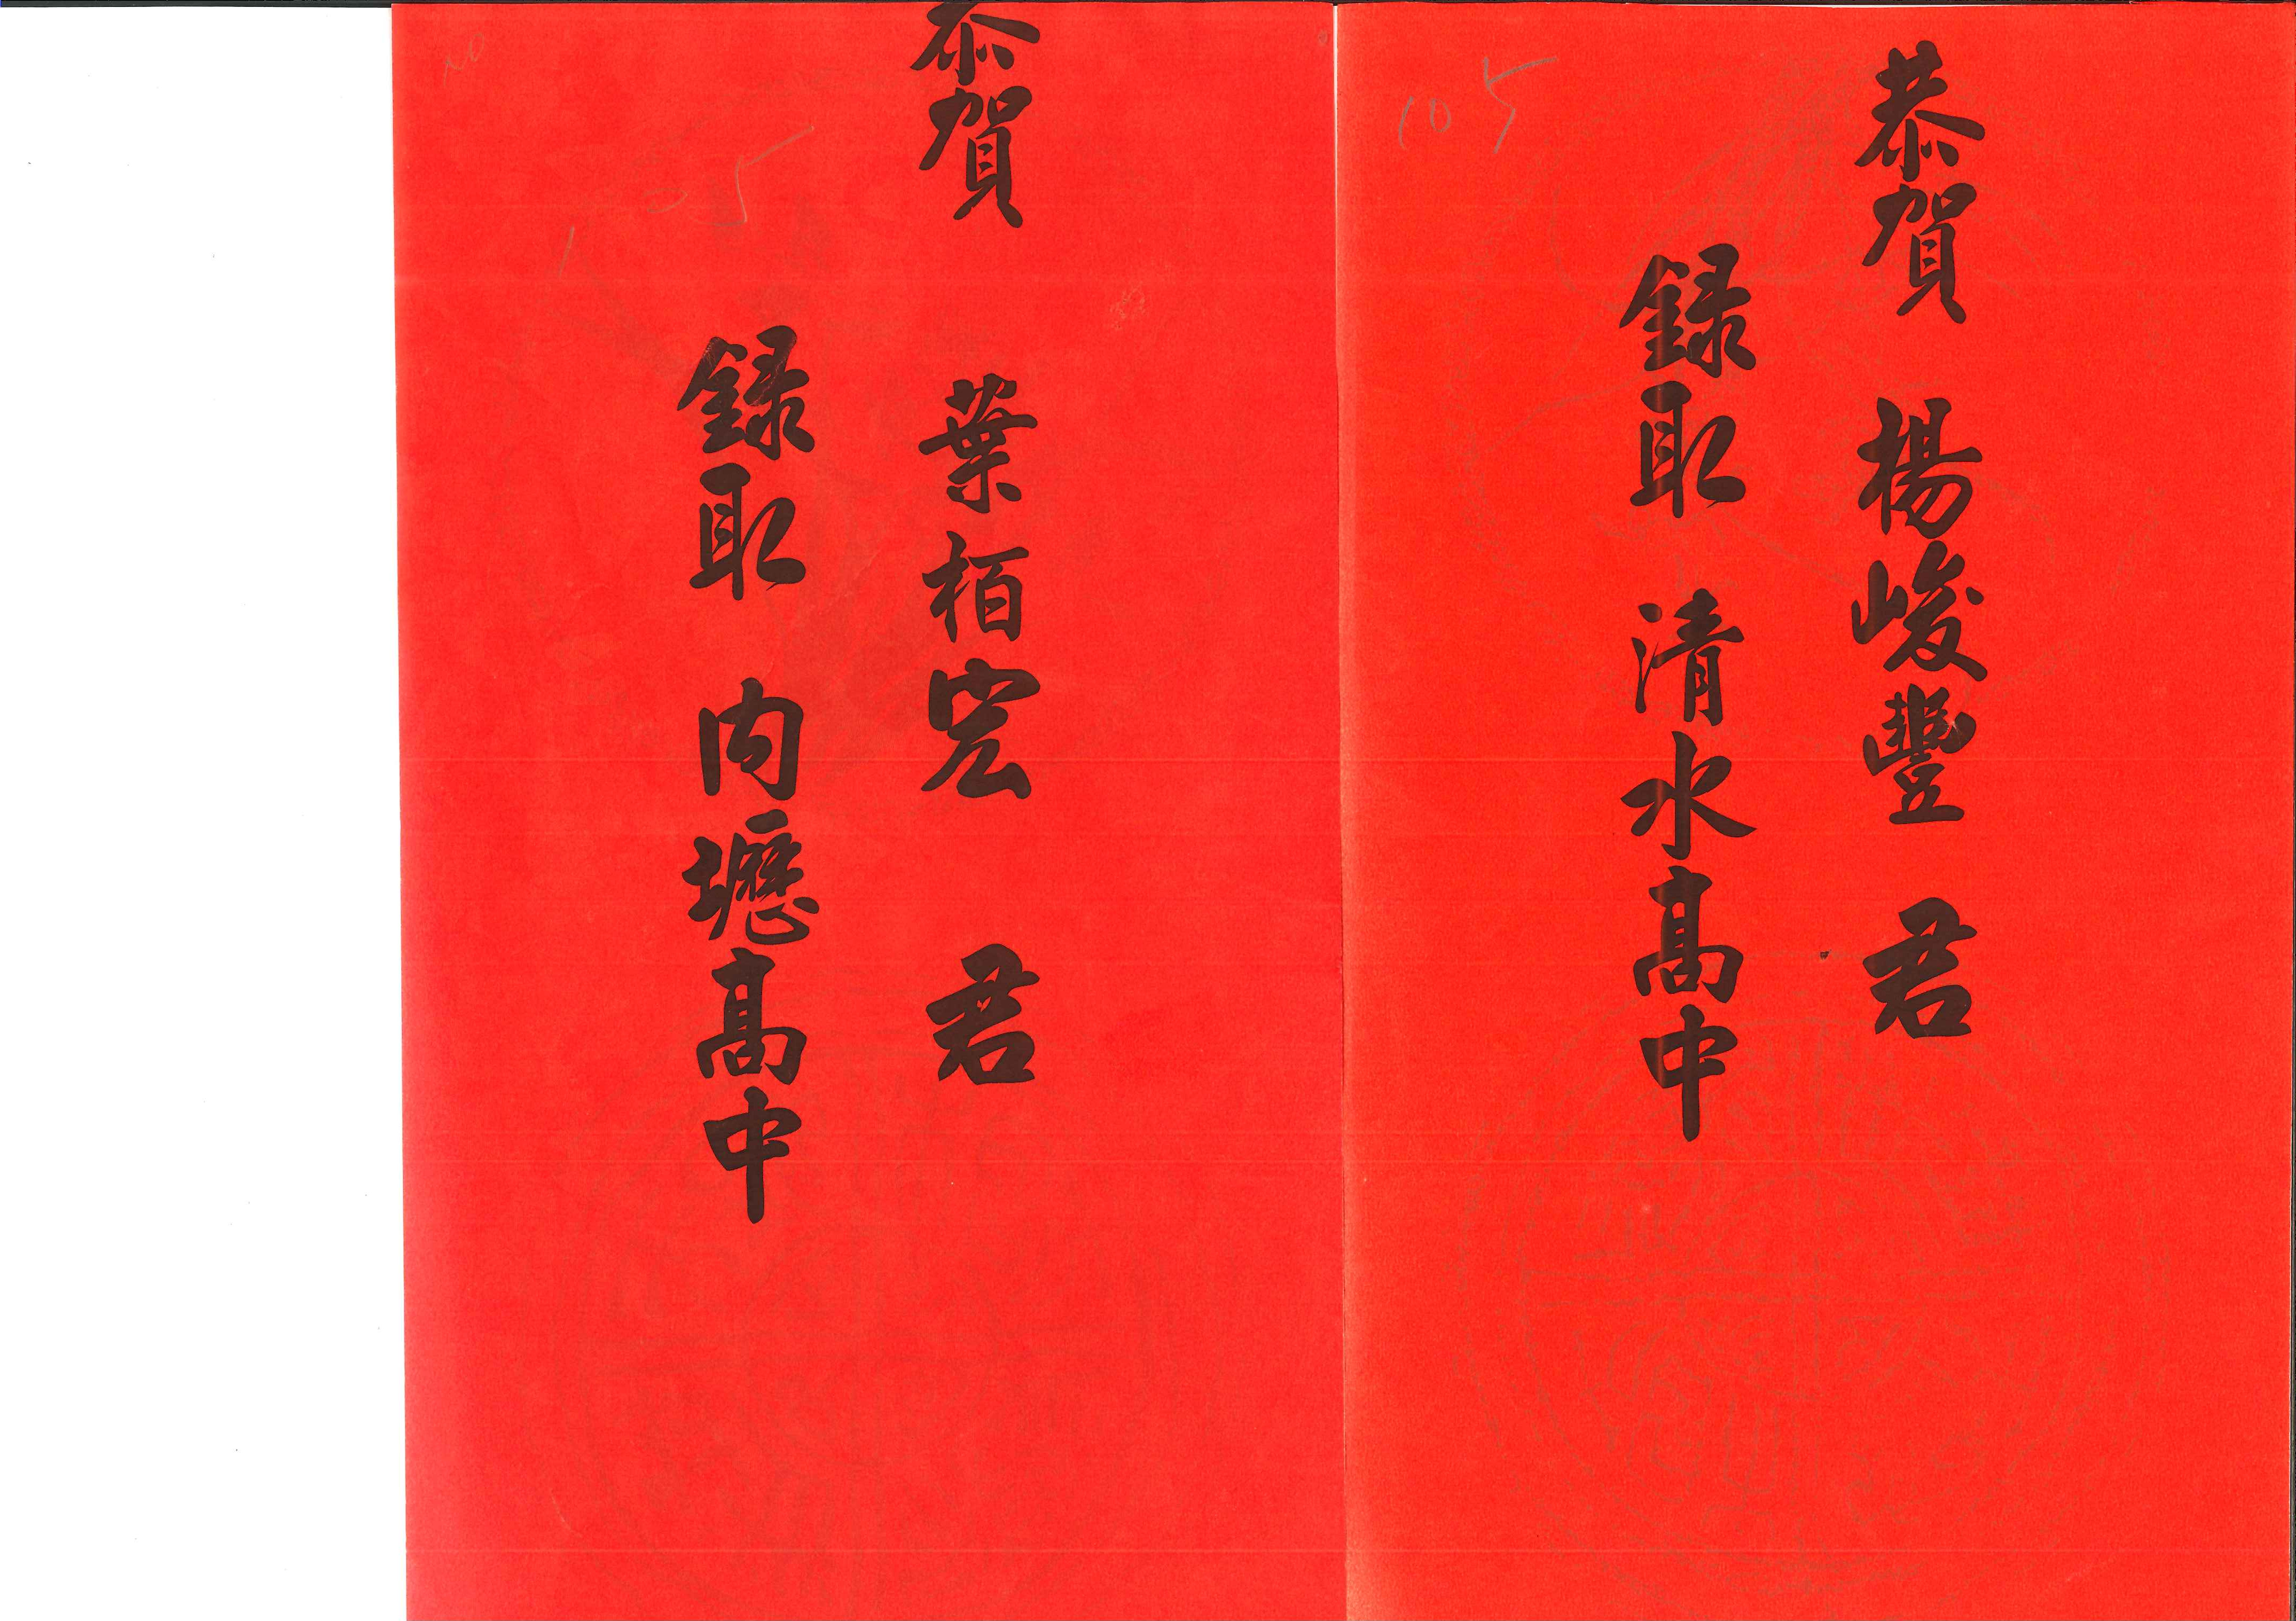 恭賀 楊峻豐 君
錄取 清水高中
105
恭賀 葉栢宏 君
錄取 內壢高中
105